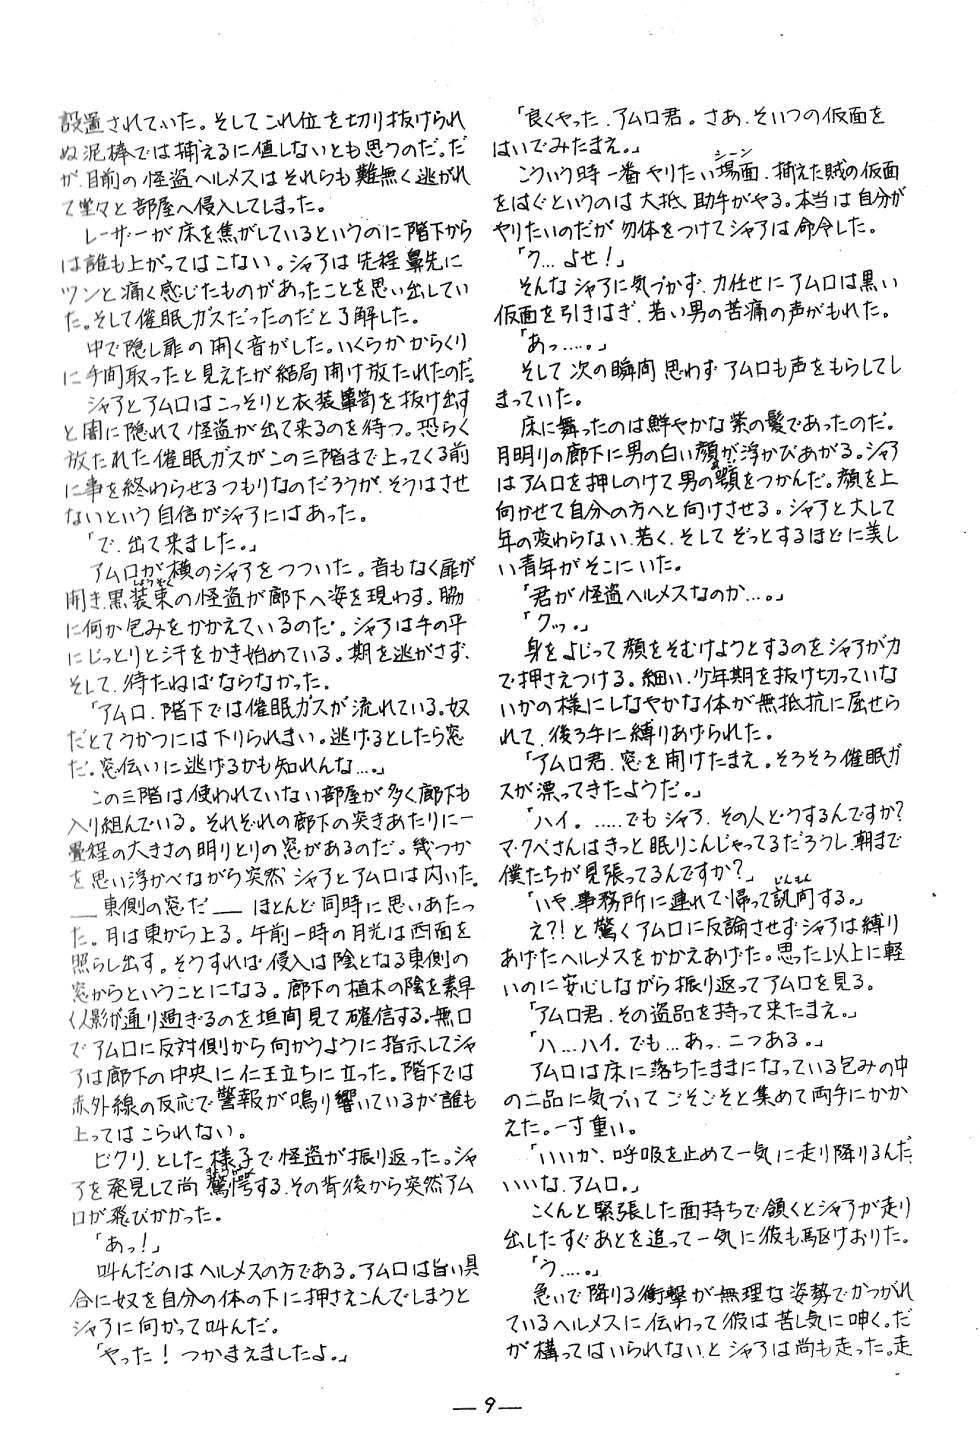 設置されていた。そしてこれ位を切り抜けられ
ぬ泥棒では捕えるに値しないとも思うのだ。だ
が、目前の怪盗ヘルメスはそれらも難無く逃がれ
て堂々と部屋へ侵入してしまった。
レーザーが床を焦がしているというのに階下から
は誰も上がってはこない。シャアは先程鼻先に
ツンと痛く感じたものがあったことを思い出してい
た。そして催眠ガスだったのだと了解した。
中で隠し扉の開く音がした。いくらかからくり
に手間取ったと見えたが結局開け放たれたのだ。
シャアとアムロはこっそりと衣装箪笥を抜け出す
と闇に隠れて怪盗が出て来るのを待つ。恐らく
放たれた催眠ガスがこの三階まで上ってくる前
に事を終わらせるつもりなのだろうが、そうはさせ
ないという自信がシャアにはあった。
「で、出て来ました。」
アムロが横のシャアをつついた。音もなく扉が
開き、黒装束の怪盗が廊下へ姿を現わす。脇
に何か包みをかかえているのだ。シャアは手の平
にじっとりと汗をかき始めている。期を逃がさず、
そして、待たねばならなかった。
「アムロ、階下では催眠ガスが流れている。奴
だとてうかつには下りられまい。逃げるとしたら窓
だ。窓伝いに逃げるかも知れんな…。」
この三階は使われていない部屋が多く、廊下も
入り組んでいる。それぞれの廊下の突きあたりに一
畳程の大きさの明りとりの窓があるのだ。幾つか
を思い浮かべながら突然シャアとアムロは閃いた。
__東側の窓だ__ほとんど同時に思いあたっ
た。月は東から上る。午前一時の月光は西面を
照らし出す。そうすれば侵入は陰となる東側の
窓からということになる。廊下の植木の陰を素早
く人影が通り過ぎるのを垣間見て確信する。無口
でアムロに反対側から向かうように指示してシャ
アは廊下の中央に仁王立ちに立った。階下では
赤外線の反応で警報が鳴り響いているが誰も
上ってはこられない。
ビクリ、とした様子で怪盗が振り返った。シャ
アを発見して尚驚愕する、その背後から突然アム
ロが飛びかかった。
「あっ！」
叫んだのはヘルメスの方である。アムロは旨い具
合に奴を自分の体の下に押さえこんでしまうと
シャアに向かって叫んだ。
「やった！つかまえましたよ。」
「良くやった、アムロ君。さあ、そいつの仮面を
はいでみたまえ。」
こういう時一番やりたい場面、捕えた賊の仮面
をはぐというのは大抵、助手がやる。本当は自分が
やりたいのだが勿体をつけてシャアは命令した。
「ク…よせ！」
そんなシャアに気づかず、力任せにアムロは黒い
仮面を引きはぎ、若い男の苦痛の声がもれた。
「あっ……。」
そして次の瞬間思わずアムロも声をもらしてし
まっていた。
床に舞ったのは鮮やかな紫の髪であったのだ。
月明りの廊下に男の白い顔が浮かびあがる。シャア
はアムロを押しのけて男の顎をつかんだ。顔を上
向かせて自分の方へと向けさせる。シャアと大して
年の変わらない、若く、そしてぞっとするほどに美し
い青年がそこにいた。
「君が怪盗ヘルメスなのか…。」
「クッ。」
身をよじって顔をそむけようとするのをシャアが力
で押さえつける。細い、少年期を抜け切っていな
いかの様にしなやかな体が無抵抗に屈せら
れて、後ろ手に縛りあげられた。
「アムロ君、窓を開けたまえ。そろそろ催眠ガ
スが漂ってきたようだ。」
「ハイ。……でもシャア、その人どうするんですか？
マ・クベさんはきっと眠りこんじゃってるだろうし、朝まで
僕たちが見張ってるんですか？」
「いや、事務所に連れて帰って訊問する。」
え？！と驚くアムロに反論させずシャアは縛り
あげたヘルメスをかかえあげた。思った以上に軽
いのに安心しながら振り返ってアムロを見る。
「アムロ君、その盗品を持って来たまえ。」
「ハ…ハイ。でも…あっ、二つある。」
アムロは床に落ちたままになっている包みの中
の二品に気づいてごそごそと集めて両手にかか
えた。一寸重い。
「いいか、呼吸を止めて一気に走り降りるんだ、
いいな、アムロ。」
こくんと緊張した面持ちで頷くとシャアが走り
出したすぐあとを追って一気に彼も駆けおりた。
「う……。」
急いで降りる衝撃が無理な姿勢でかつがれ
ているヘルメスに伝わって彼は苦し気に呻く。だ
が構ってはいられないとシャアは尚も走った。走
― 9 ―